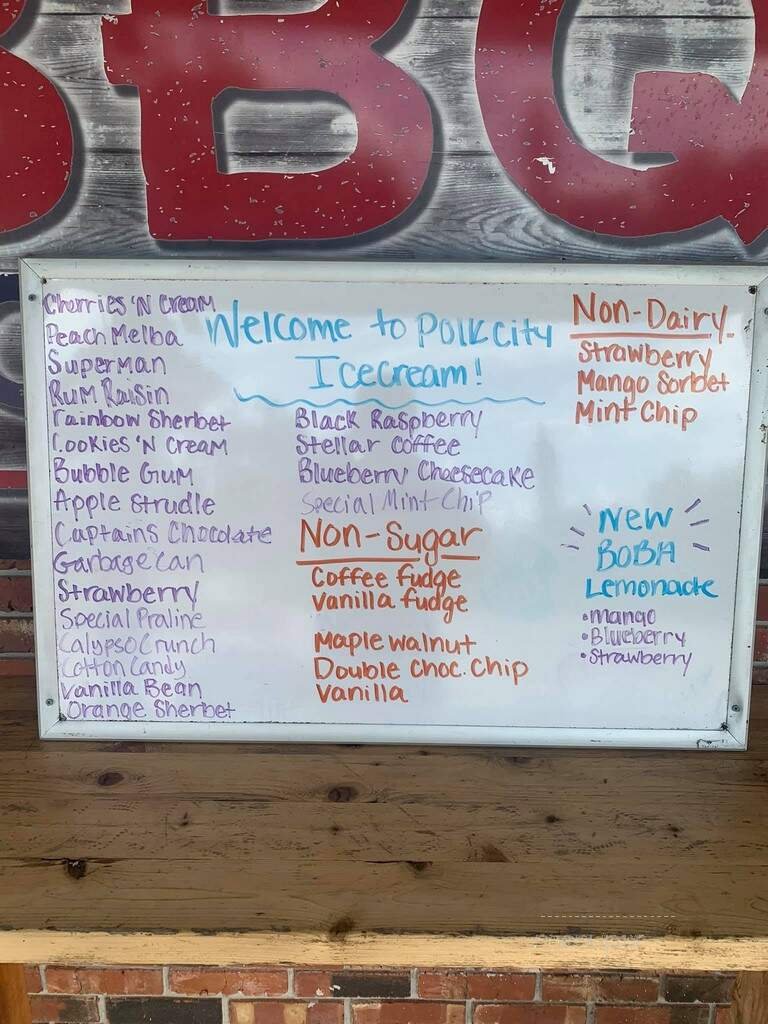 BBQ
Welcome to Polk City
Icecream!
Cherries 'N Cream
Peach Melba
Superman
Rum Raisin
rainbow Sherbet
Cookies 'N Cream
Bubble Gum
Apple Strudle
Captains Chocolate
Garbage Can
Strawberry
Special Praline
Calypso Crunch
Cotton Candy
Vanilla Bean
Orange Sherbet
Black Raspberry
Stellar Coffee
Blueberry Cheesecake
Special Mint Chip
Non-Sugar
Coffee fudge
Vanilla fudge
Maple walnut
Double Choc. Chip
Vanilla
Non-Dairy
Strawberry
Mango Sorbet
Mint Chip
New
BOBA
Lemonade
• mango
• Blueberry
• Strawberry